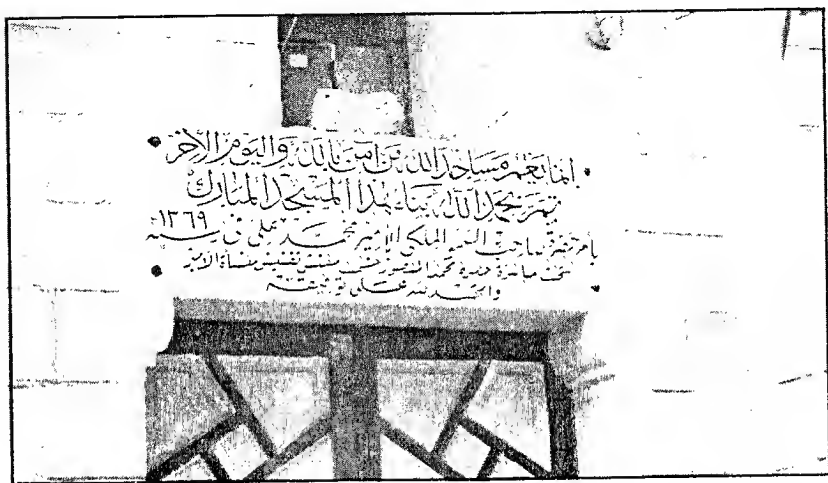 إنما يعمر مساجد الله من آمن بالله واليوم الآخر
تم بحمد الله بناء هذا المسجد المبارك
بأمر حضرة صاحب السمو الملكي الأمير محمد علي في سنة ١٣٦٩
تحت مباشرة حضرة محمد منصور مفتش تفتيش منشأة الأمير
والحمد لله على توفيقه